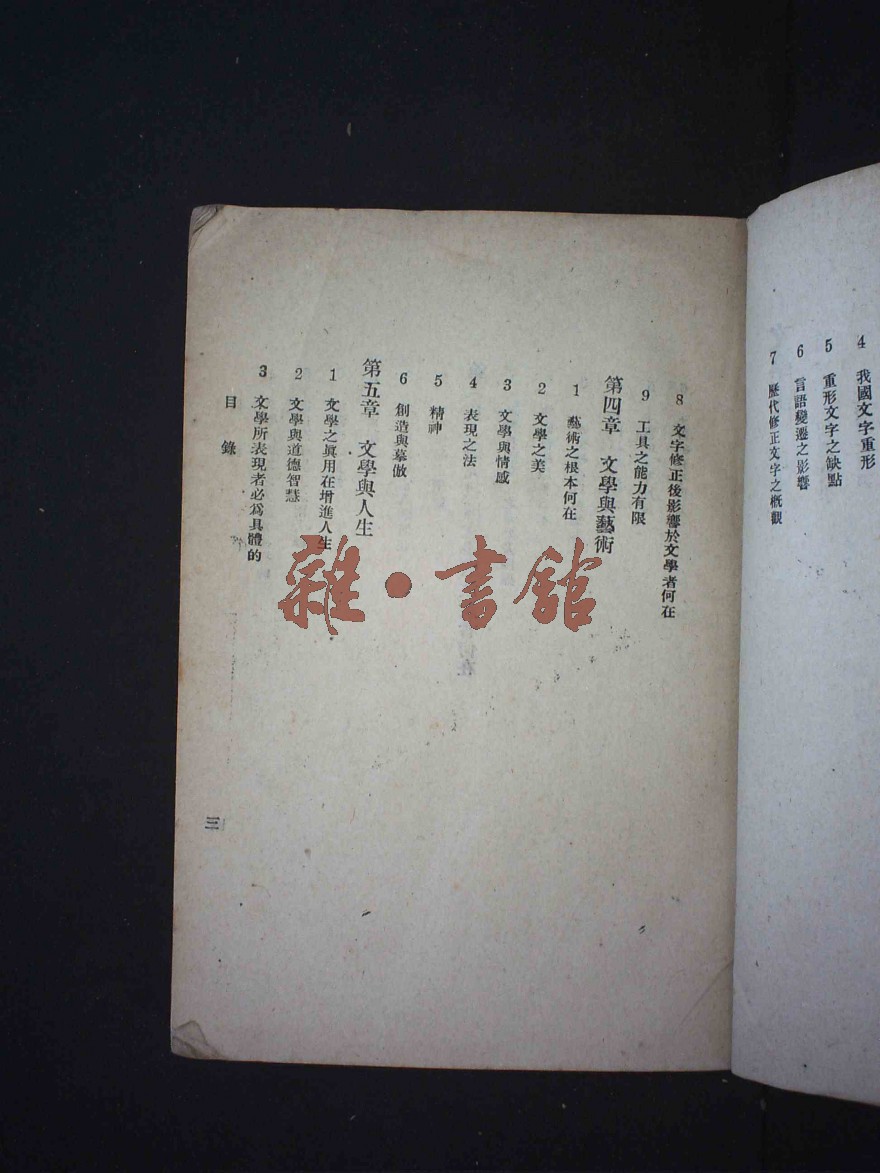 4 我國文字重形
5 重形文字之缺點
6 言語變遷之影響
7 歷代修正文字之概觀
8 文字修正後影響於文學者何在
9 工具之能力有限
第四章 文學與藝術
1 藝術之根本何在
2 文學之美
3 文學與情感
4 表現之法
5 精神
6 創造與摹倣
第五章 文學與人生
1 文學之眞用在增進人生
2 文學與道德智慧
3 文學所表現者必爲具體的
目錄
三
雜·書館